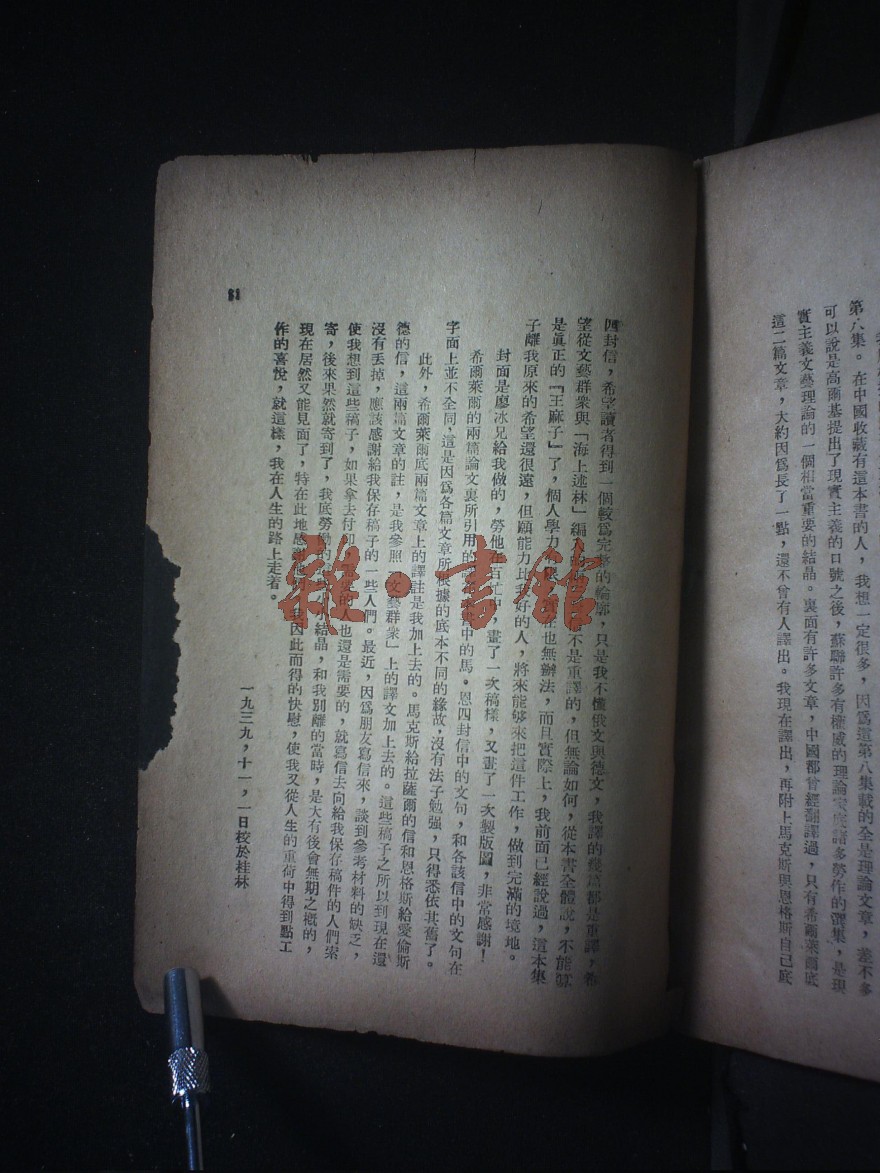 第八集。在中國收藏有這本書的人，我想一定很多，因爲這第八集載的全是理論文章，差不多
可以說是高爾基提出了現實主義的口號之後，蘇聯許多有權威的理論家底諸多勞作的選集，是現
實主義文藝理論的一個相當重要的結晶。裏面有許多文章，中國都曾經翻譯過，只有希爾萊爾底
這二篇文章，大約因爲長了一點，還不曾有人譯出。我現在譯出，再附上馬克斯與恩格斯自己底
四封信，希望讀者得到一個較爲完整的輪廓，只是我不懂俄文與德文，我譯的幾篇都是重譯，希
望從文藝群衆與「海上述林」編入的 不是重譯的，但無論如何，從本書全體說，不能算
是眞正的「王麻子」了，個人學力 在也無辦法，而且實際上，我前面已經說過，這本集
子離我原來的希望還很遠，但願能力比我好的人，將來能够來把這件工作，做到完滿的境地。
封面是廖冰兄給我做的，勞他在百忙中，畫了一次稿樣，又畫了一次製版圖，非常感謝！
希爾萊爾的兩篇論文裏所引用的 書中的馬。恩四封信中的文句，和各該信中的文句在
字面上並不全同，這是因爲各篇文章所根據的底本不同的緣故，沒有法子勉强，只得悉依其舊了。
此外，希爾萊爾底兩篇文章上的譯註是我加上去的。馬克斯給拉薩爾的信和恩格斯給愛倫斯
德的信，這兩篇文章的註，是我參照「文藝群衆」上的譯文加上去的。這些稿子之所以到現在還
沒有丟掉，應該感謝給我保存稿子的一些人們。最近，因爲朋友寫信來，談到參考材料的缺乏，
使我想到這些稿子，如果拿去付印 的人也還是需要的，就寫信去向給我保存稿件的人們索
寄，後來果然就寄到了，我底勞働的 小結晶，和我別離的當時，是大有後會無期之概的，
現在居然又能見面了，特在此地感謝 我因此而得的快慰，使我又從人生的重荷中得到點工
作的喜悅，就這樣，我在人生的路上走着。
一九三九，十一，一日校於桂林
雜·書館